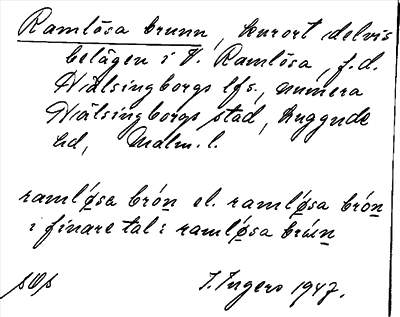 Ramlösa brunn, kurort delvis
belägen i V. Ramlösa, f.d.
Hälsingborgs lfs., numera
Hälsingborgs stad, Luggude
hd, Malm. l.
ramlǿsa brón el. ramlǿsa brón
i finare tal: ramlǿsa brún
sOs
I. Ingers 1947.